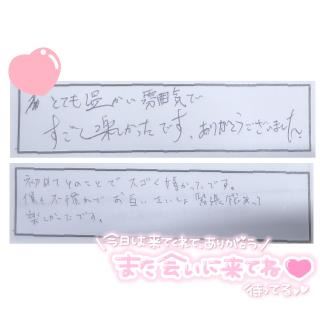 とても温かい雰囲気で
すごく楽しかったです。ありがとうございました
初めてとのことでスゴく嬉かったです。
僕も不慣れでお互いさいしょ緊張感あって
楽しかったです。
今日は来てくれてありがとう
また会いに来てね
待ってる